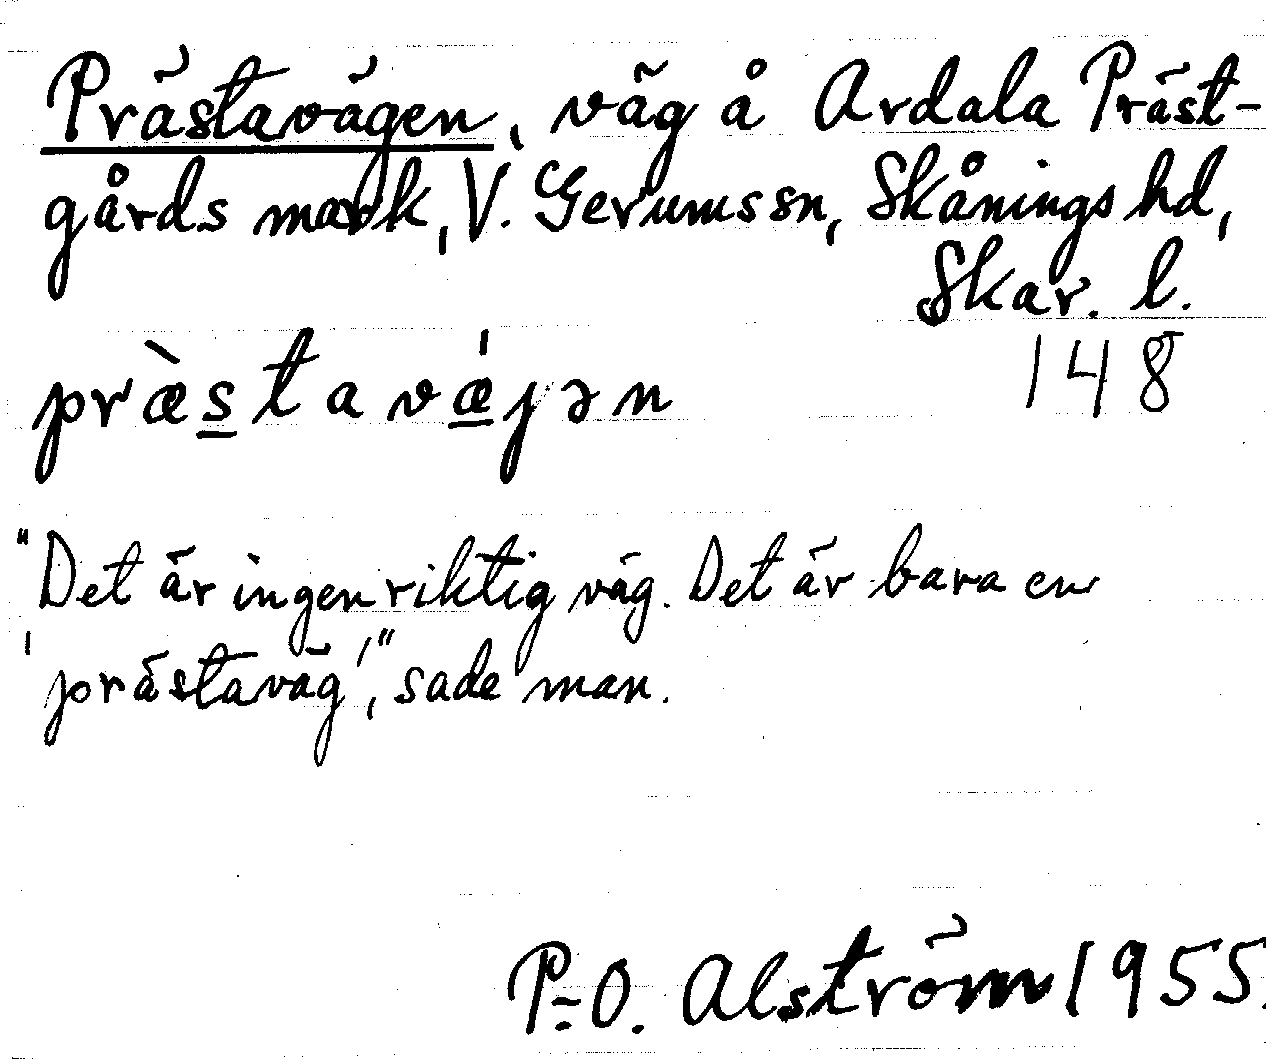 Prästavägen, väg å Ardala Präst-
gårds mark, V. Gerumssn, Skånings hd,
Skar. l.
148
præ̀stavǽjən
"Det är ingen riktig väg. Det är bara en
'prästaväg'", sade man.
P-O. Alström 1955.